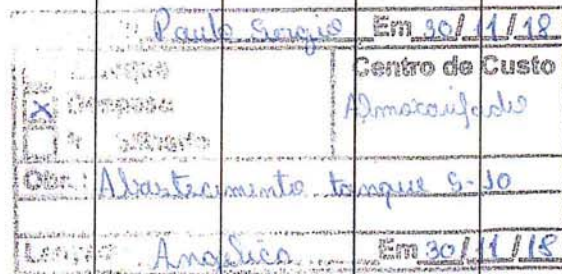 Paulo Sergio Em 30/11/18
Centro de Custo
Despesa
Almoxarifado
Obs.: Abastecimento tanque S-10
Angelica Em 30/11/18